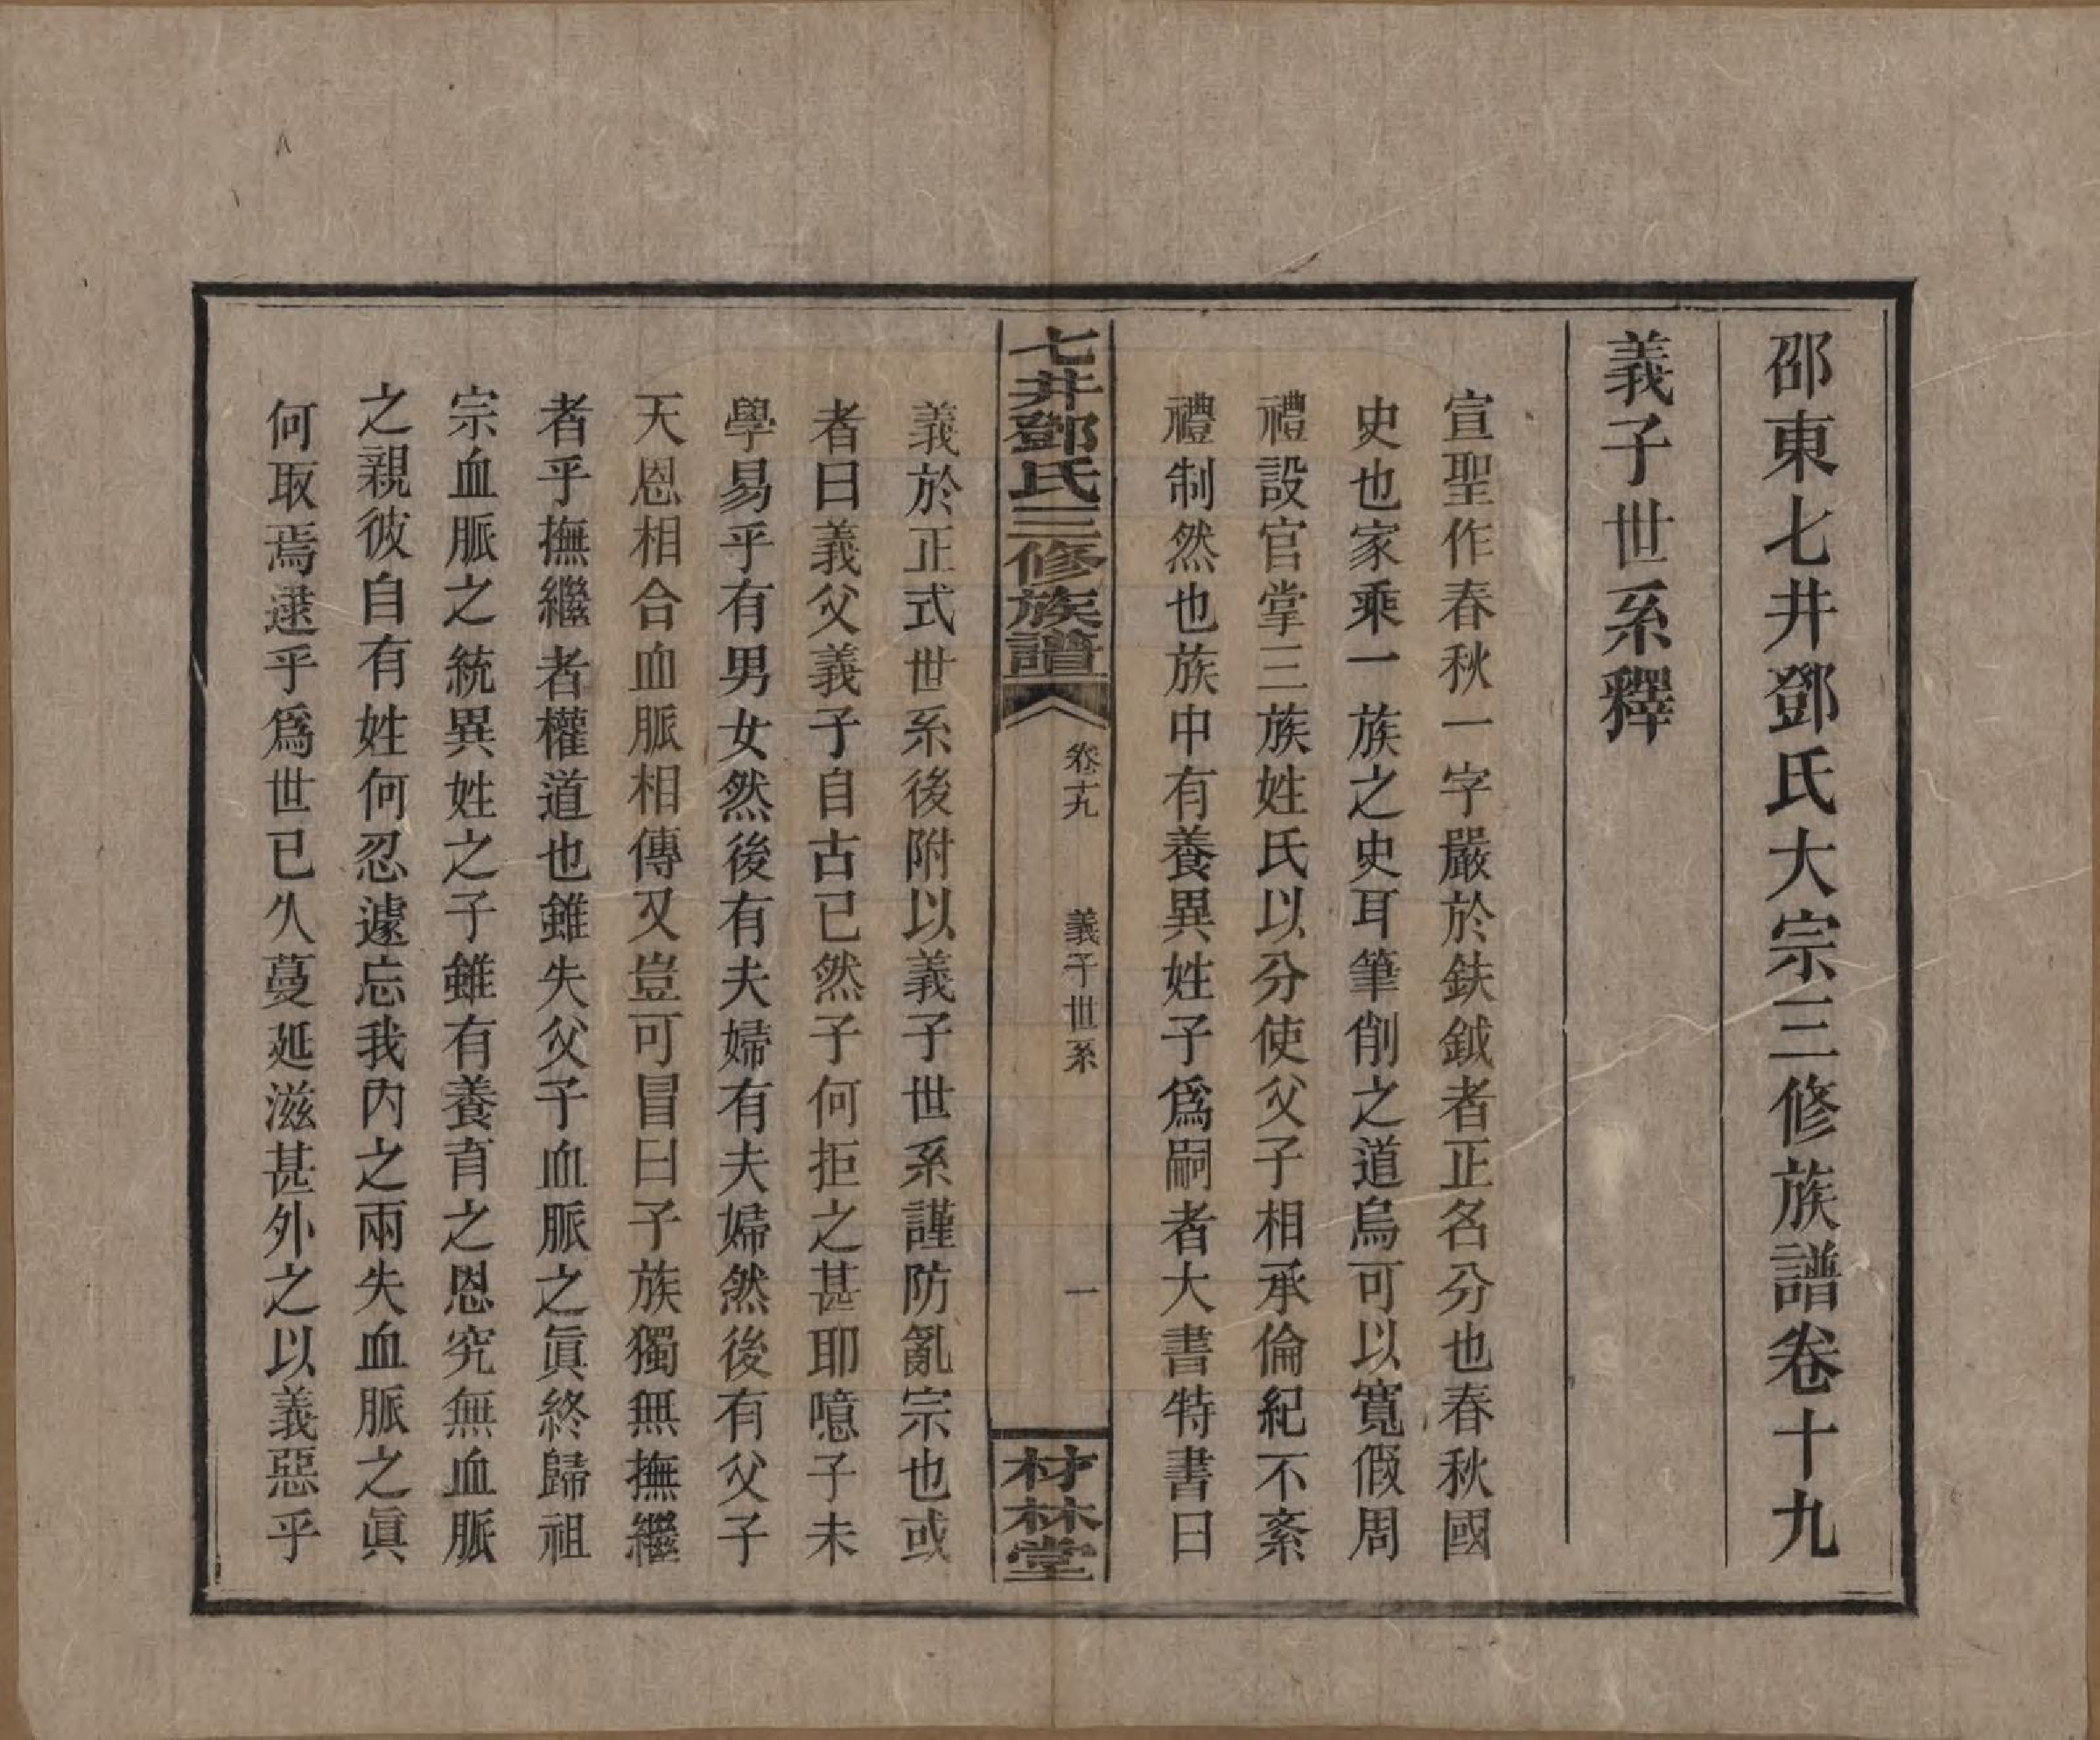 邵東七井鄧氏大宗三修族譜卷十九
義子世系釋
宣聖作春秋一字嚴於鈇鉞者正名分也春秋國
史也家乘一族之史耳筆削之道烏可以寬假周
禮設官掌三族姓氏以分使父子相承倫紀不紊
禮制然也族中有養異姓子爲嗣者大書特書曰
七井鄧氏三修族譜
卷十九
義子世系
一
材林堂
義於正式世系後附以義子世系謹防亂宗也或
者曰義父義子自古已然子何拒之甚耶噫子未
學易乎有男女然後有夫婦有夫婦然後有父子
天恩相合血脈相傳又豈可冒曰子族獨無撫繼
者乎撫繼者權道也雖失父子血脈之眞終歸祖
宗血脈之統異姓之子雖有養育之恩究無血脈
之親彼自有姓何忍遽忘我內之兩失血脈之眞
何取焉逮乎爲世已久蔓延滋甚外之以義惡乎